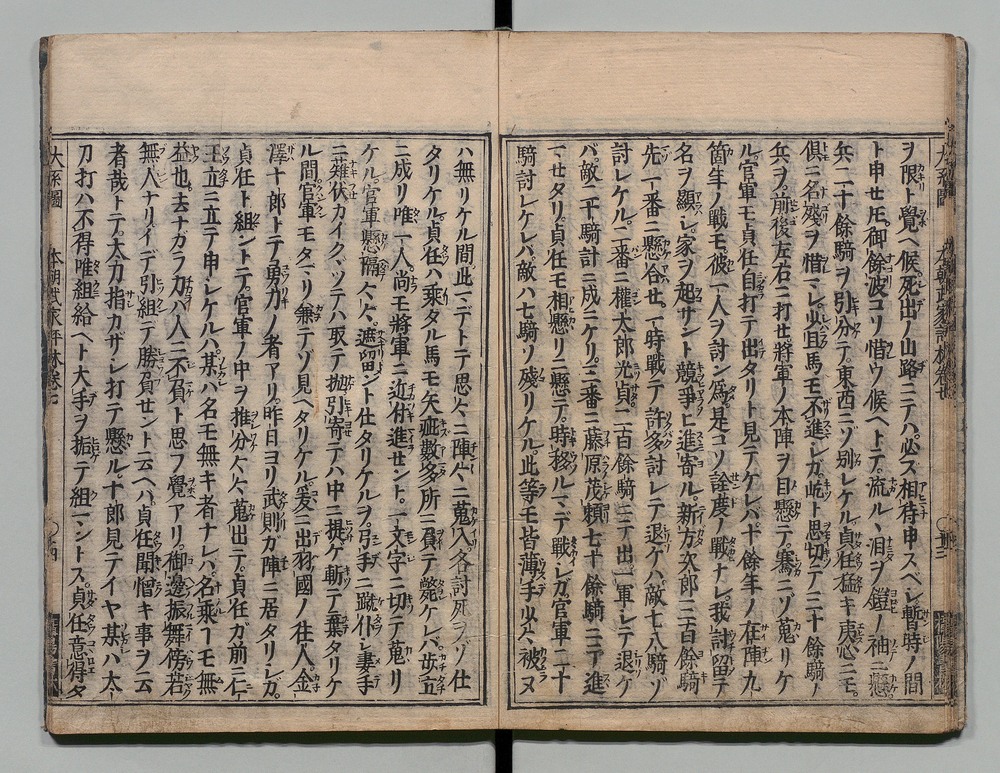 ヲ限ト覺ヘ候死出ノ山路ニテハ必ス相待申スベシ暫時ノ間
ト申セ𪜈御餘波コソ惜ウ候ヘトテ流ルヽ泪ヲ鎧ノ袖ニ懸
兵二十餘騎ヲ引分テ東西ニゾ別レケル貞任猛キ夷心ニモ
俱ニ名殘ヲ惜マレ必且馬モ不進シガ屹ト思切テ三十餘騎ノ
兵ヲ前後左右ニ打せ將軍ノ本陣ヲ目懸テ驀ニゾ蒐リケ
ル官軍モ貞任自打テ出タリト見テケレバ十餘年ノ在陣九
箇年ノ戰モ彼一人ヲ討ン爲是コソ詮度ノ戰ナレ我討留テ
名ヲ顯シ家ヲ起サント競爭ヒ進寄ル新方次郎二百餘騎
先一番ニ懸合せ一時戰テ許多討レテ退ケバ敵七八騎ゾ
討レケル二番ニ權太郎光貞二百餘騎ニテ出一軍シテ退ケ
バ敵二千騎計ニ成ニケリ三番ニ藤原茂賴七十餘騎ニテ進
マせタリ貞任モ相懸リニ懸テ時移ルマデ戰シガ官軍二十
騎討レケレバ敵ハ七騎ゾ殘リケル此等モ皆薄手少々被ヌ
ハ無リケル間此マデトテ思々ニ陣々ニ蒐入各討死ヲゾ仕
タリケル貞任ハ乘タル馬モ矢疵數多所ニ負テ斃ケレバ步立
ニ成リ唯一人尚モ將軍ニ近付進せント一文字ニ切テ蒐リ
ケル官軍懸隔々々遮留ント仕タリケルヲ弓手ニ蹴仆シ妻手
ニ薙伏カイクヾツテハ取テ抛引寄テハ中ニ提ゲ斬テ棄タリケ
ル間官軍モタマリ無テゾ見ヘタリケル爰ニ出羽國ノ住人金
澤十郎トテ勇力ノ者アリ昨日ヨリ武則ガ陣ニ居タリシガ
貞任ト組ントテ官軍ノ中ヲ推分々々蒐出テ貞任ガ前ニ仁
王立ニ立テ申シケルハ某ハ名モ無キ者ナレハ名乘ーモ無
益也去ナガラ力ハ人ニ不負ト思フ覺アリ御邊振舞傍若
無人ナリイデ引組テ勝負せント云ヘハ貞任聞憎キ事ヲ云
者哉トテ太刀指カザシ打テ懸ル十郎見テイヤ某ハ太
刀打ハ不得唯組給ヘト大手ヲ㧞テ組ーントス貞任意得タ
大系圖 本朝武家評林卷七 ○四